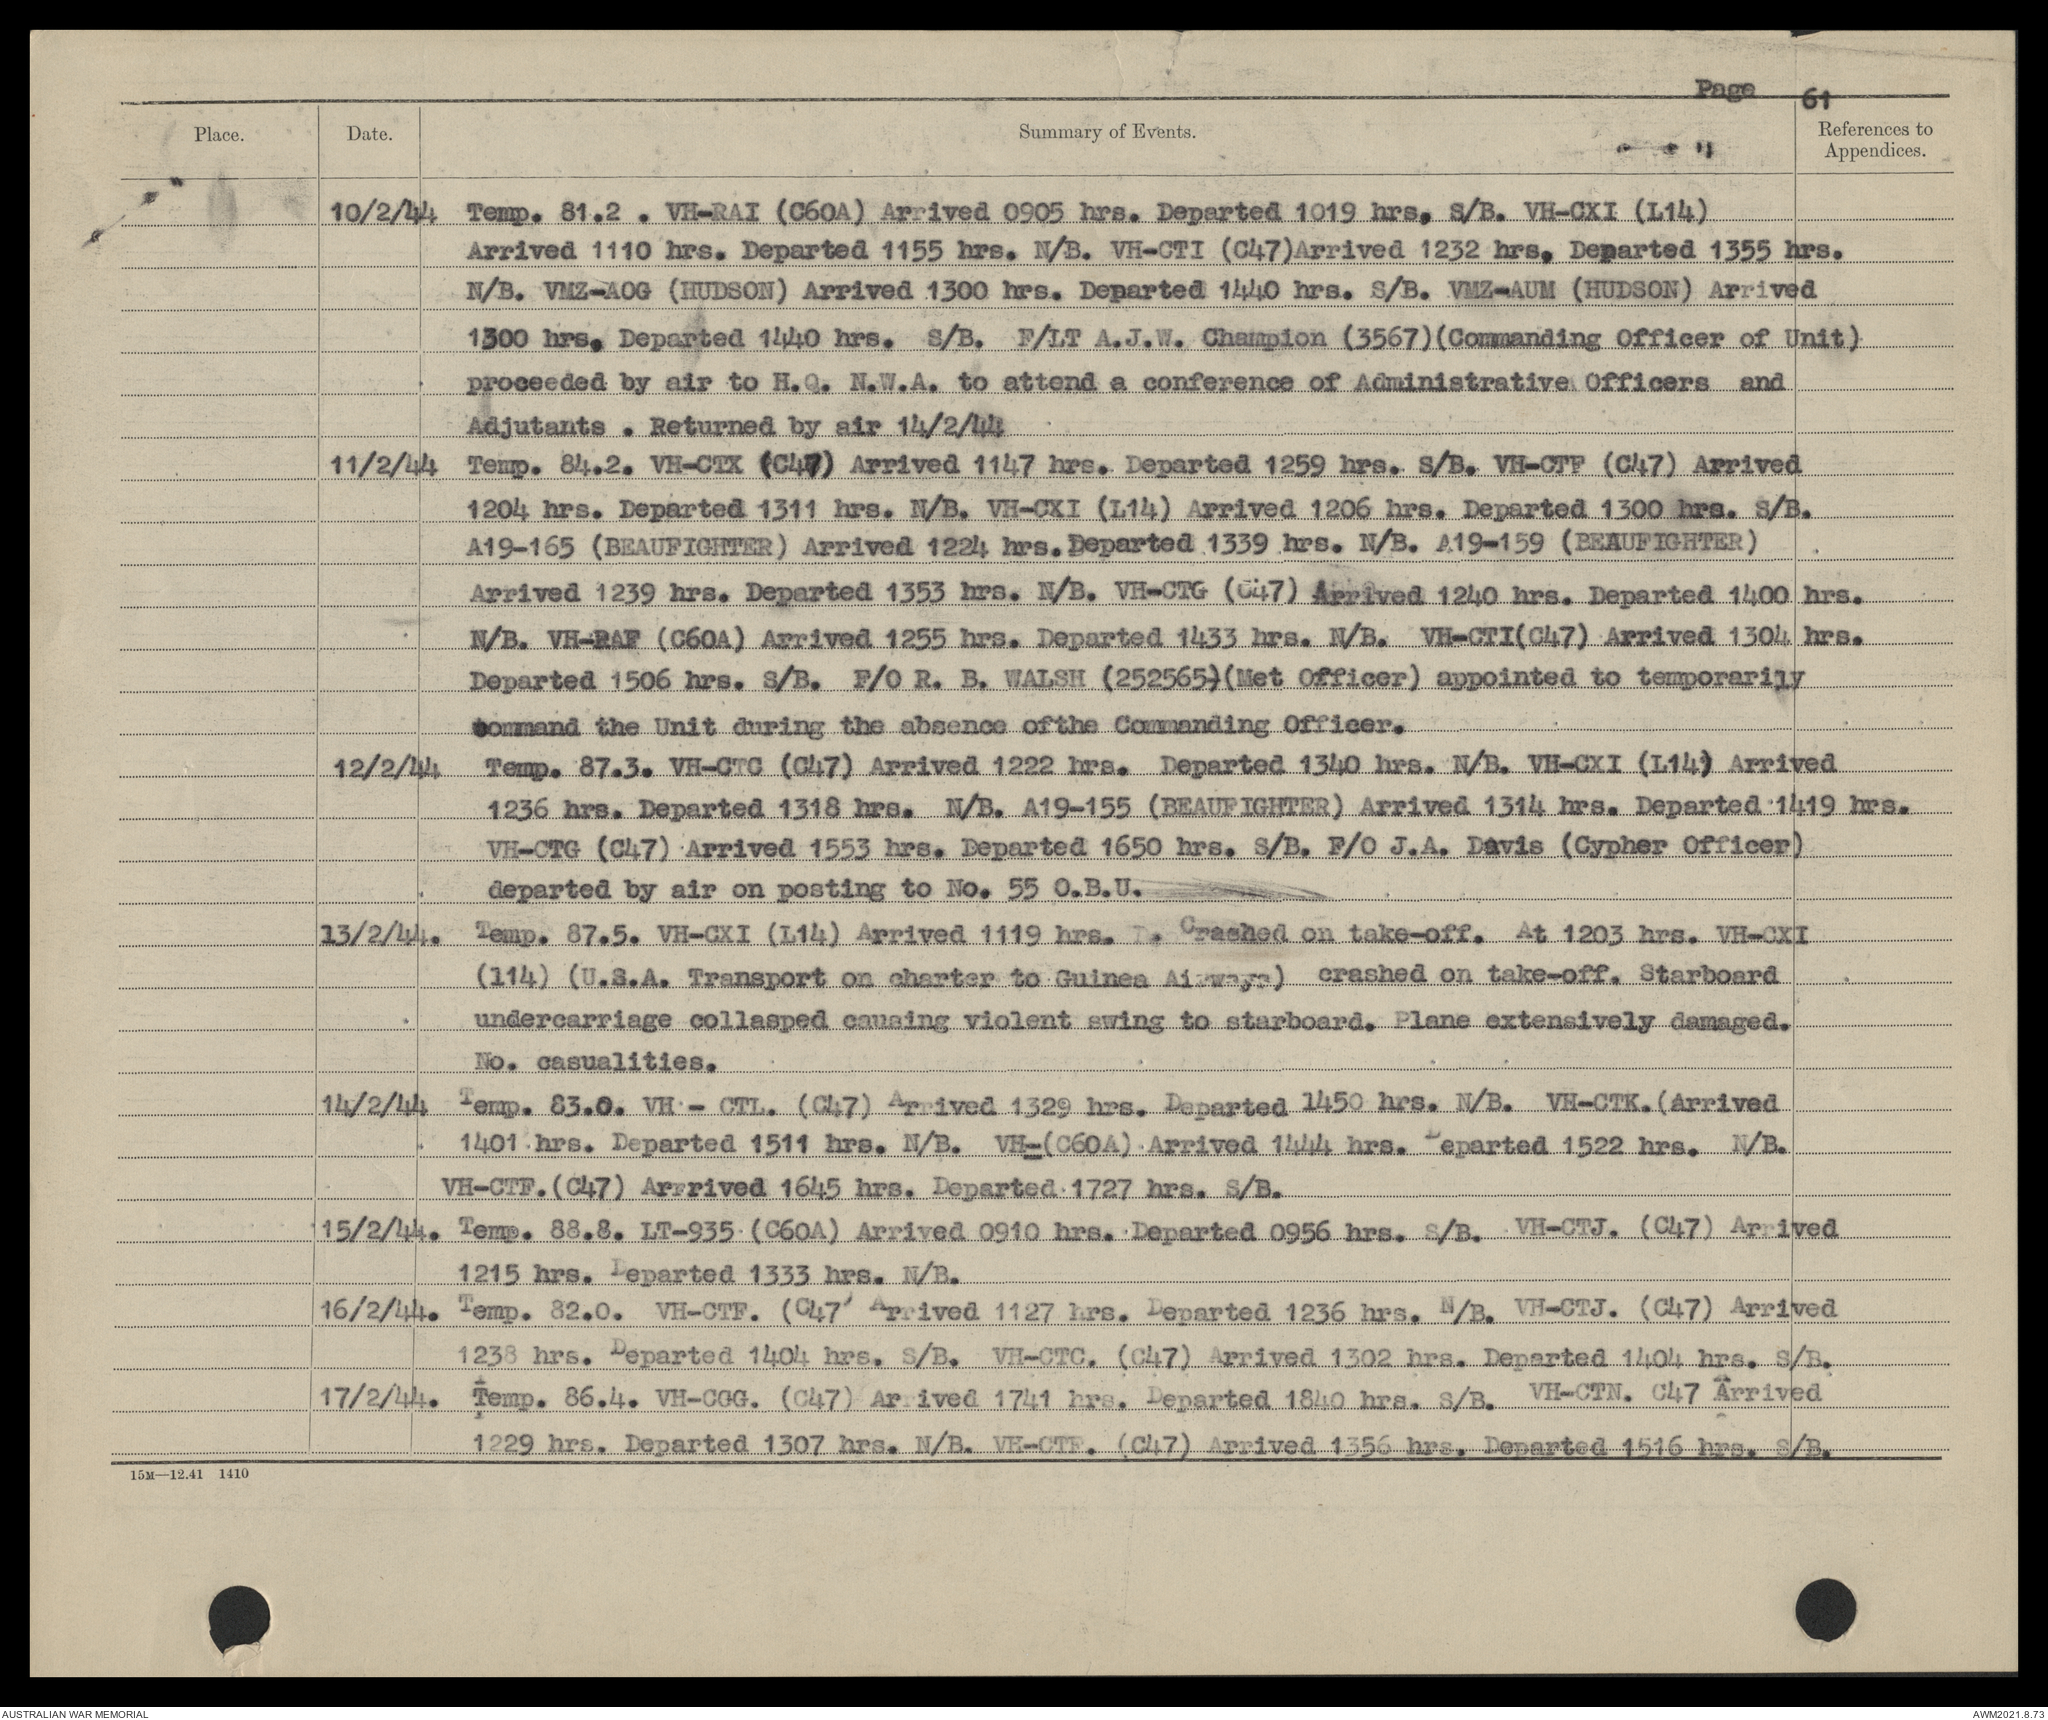 Page 61
Place. Date. Summary of Events. References to Appendices.
10/2/44 Temp. 81.2 . VH-RAI (C60A) Arrived 0905 hrs. Departed 1019 hrs. S/B. VH-CXI (L14)
Arrived 1110 hrs. Departed 1155 hrs. N/B. VH-CTI (C47)Arrived 1232 hrs. Departed 1355 hrs.
N/B. VMZ-AOG (HUDSON) Arrived 1300 hrs. Departed 1440 hrs. S/B. VMZ-AUM (HUDSON) Arrived
1300 hrs. Departed 1440 hrs. S/B. F/LT A.J.W. Champion (3567)(Commanding Officer of Unit)
proceeded by air to H.Q. N.W.A. to attend a conference of Administrative Officers and
Adjutants . Returned by air 14/2/44
11/2/44 Temp. 84.2. VH-CTX (C47) Arrived 1147 hrs. Departed 1259 hrs. S/B. VH-CTF (C47) Arrived
1204 hrs. Departed 1311 hrs. N/B. VH-CXI (L14) Arrived 1206 hrs. Departed 1300 hrs. S/B.
A19-165 (BEAUFIGHTER) Arrived 1224 hrs. Departed 1339 hrs. N/B. A19-159 (BEAUFIGHTER)
Arrived 1239 hrs. Departed 1353 hrs. N/B. VH-CTG (C47) Arrived 1240 hrs. Departed 1400 hrs.
N/B. VH-RAF (C60A) Arrived 1255 hrs. Departed 1433 hrs. N/B. VH-CTI(C47) Arrived 1304 hrs.
Departed 1506 hrs. S/B. F/O R. B. WALSH (252565)(Met Officer) appointed to temporarily
command the Unit during the absence ofthe Commanding Officer.
12/2/44 Temp. 87.3. VH-CTC (C47) Arrived 1222 hrs. Departed 1340 hrs. N/B. VH-CXI (L14) Arrived
1236 hrs. Departed 1318 hrs. N/B. A19-155 (BEAUFIGHTER) Arrived 1314 hrs. Departed 1419 hrs.
VH-CTG (C47) Arrived 1553 hrs. Departed 1650 hrs. S/B. F/O J.A. Davis (Cypher Officer)
departed by air on posting to No. 55 O.B.U.
13/2/44. Temp. 87.5. VH-CXI (L14) Arrived 1119 hrs. Crashed on take-off. At 1203 hrs. VH-CXI
(l14) (U.S.A. Transport on charter to Guinea Airways) crashed on take-off. Starboard
undercarriage collasped causing violent swing to starboard. Plane extensively damaged.
No. casualities.
14/2/44 Temp. 83.0. VH - CTL. (C47) Arrived 1329 hrs. Departed 1450 hrs. N/B. VH-CTK.(Arrived
1401 hrs. Departed 1511 hrs. N/B. VH-(C60A) Arrived 1444 hrs. Departed 1522 hrs. N/B.
VH-CTF.(C47) Arrrived 1645 hrs. Departed 1727 hrs. S/B.
15/2/44. Temp. 88.8. LT-935 (C60A) Arrived 0910 hrs. Departed 0956 hrs. S/B. VH-CTJ. (C47) Arrived
1215 hrs. Departed 1333 hrs. N/B.
16/2/44. Temp. 82.0. VH-CTF. (C47) Arrived 1127 hrs. Departed 1236 hrs. N/B. VH-CTJ. (C47) Arrived
1238 hrs. Departed 1404 hrs. S/B. VH-CTC. (C47) Arrived 1302 hrs. Departed 1404 hrs. S/B.
17/2/44. Temp. 86.4. VH-CGG. (C47) Arrived 1741 hrs. Departed 1840 hrs. S/B. VH-CTN. C47 Arrived
1229 hrs. Departed 1307 hrs. N/B. VH-CTF. (C47) Arrived 1356 hrs. Departed 1516 hrs. S/B.
15M—12.41 1410
AUSTRALIAN WAR MEMORIAL AWM2021.8.73